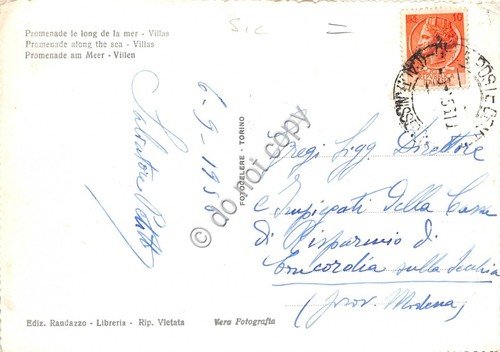 Promenade le long de la mer - Villas
Promenade along the sea - Villas
Promenade am Meer - Villen
Sic =
10
6-9-1958
Salvatore
FOTOCELERE - TORINO
Egregi Sigg Direttore
e Impiegati della Cassa
di Risparmio di
Concordia sulla Secchia
(prov. Modena)
do not copy
Ediz. Randazzo - Libreria - Rip. Vietata
Vera Fotografia